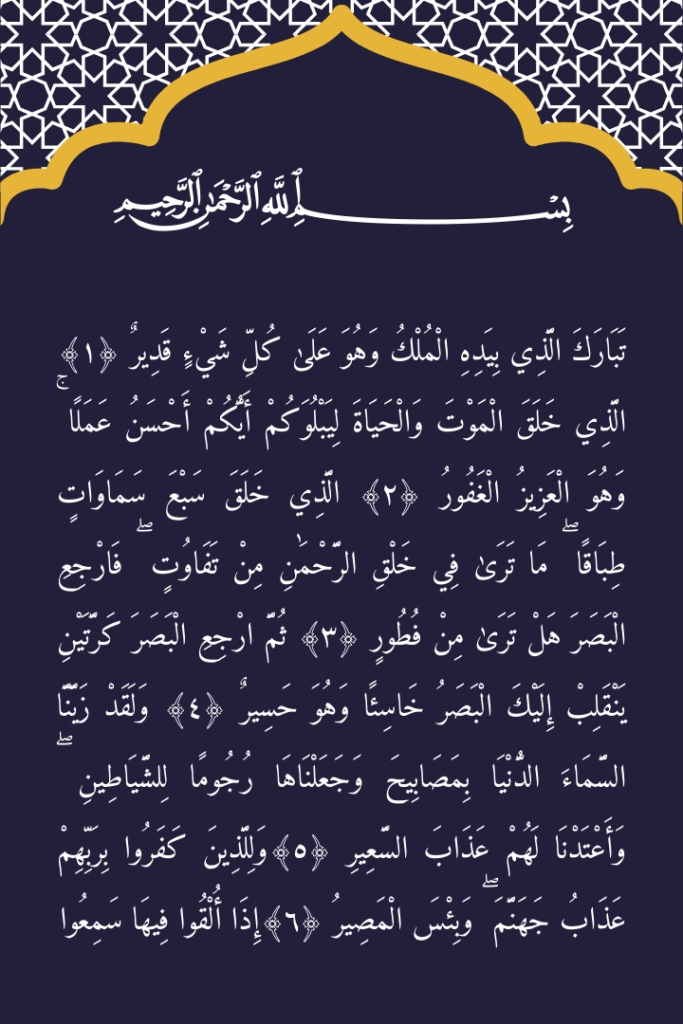 بِسْمِ ٱللَّهِ ٱلرَّحْمَٰنِ ٱلرَّحِيمِ
تَبَارَكَ الَّذِي بِيَدِهِ الْمُلْكُ وَهُوَ عَلَىٰ كُلِّ شَيْءٍ قَدِيرٌ ﴿١﴾
الَّذِي خَلَقَ الْمَوْتَ وَالْحَيَاةَ لِيَبْلُوَكُمْ أَيُّكُمْ أَحْسَنُ عَمَلًا ۚ
وَهُوَ الْعَزِيزُ الْغَفُورُ ﴿٢﴾ الَّذِي خَلَقَ سَبْعَ سَمَاوَاتٍ
طِبَاقًا ۖ مَا تَرَىٰ فِي خَلْقِ الرَّحْمَٰنِ مِنْ تَفَاوُتٍ ۖ فَارْجِعِ
الْبَصَرَ هَلْ تَرَىٰ مِنْ فُطُورٍ ﴿٣﴾ ثُمَّ ارْجِعِ الْبَصَرَ كَرَّتَيْنِ
يَنْقَلِبْ إِلَيْكَ الْبَصَرُ خَاسِئًا وَهُوَ حَسِيرٌ ﴿٤﴾ وَلَقَدْ زَيَّنَّا
السَّمَاءَ الدُّنْيَا بِمَصَابِيحَ وَجَعَلْنَاهَا رُجُومًا لِلشَّيَاطِينِ ۖ
وَأَعْتَدْنَا لَهُمْ عَذَابَ السَّعِيرِ ﴿٥﴾وَلِلَّذِينَ كَفَرُوا بِرَبِّهِمْ
عَذَابُ جَهَنَّمَ ۖ وَبِئْسَ الْمَصِيرُ ﴿٦﴾إِذَا أُلْقُوا فِيهَا سَمِعُوا